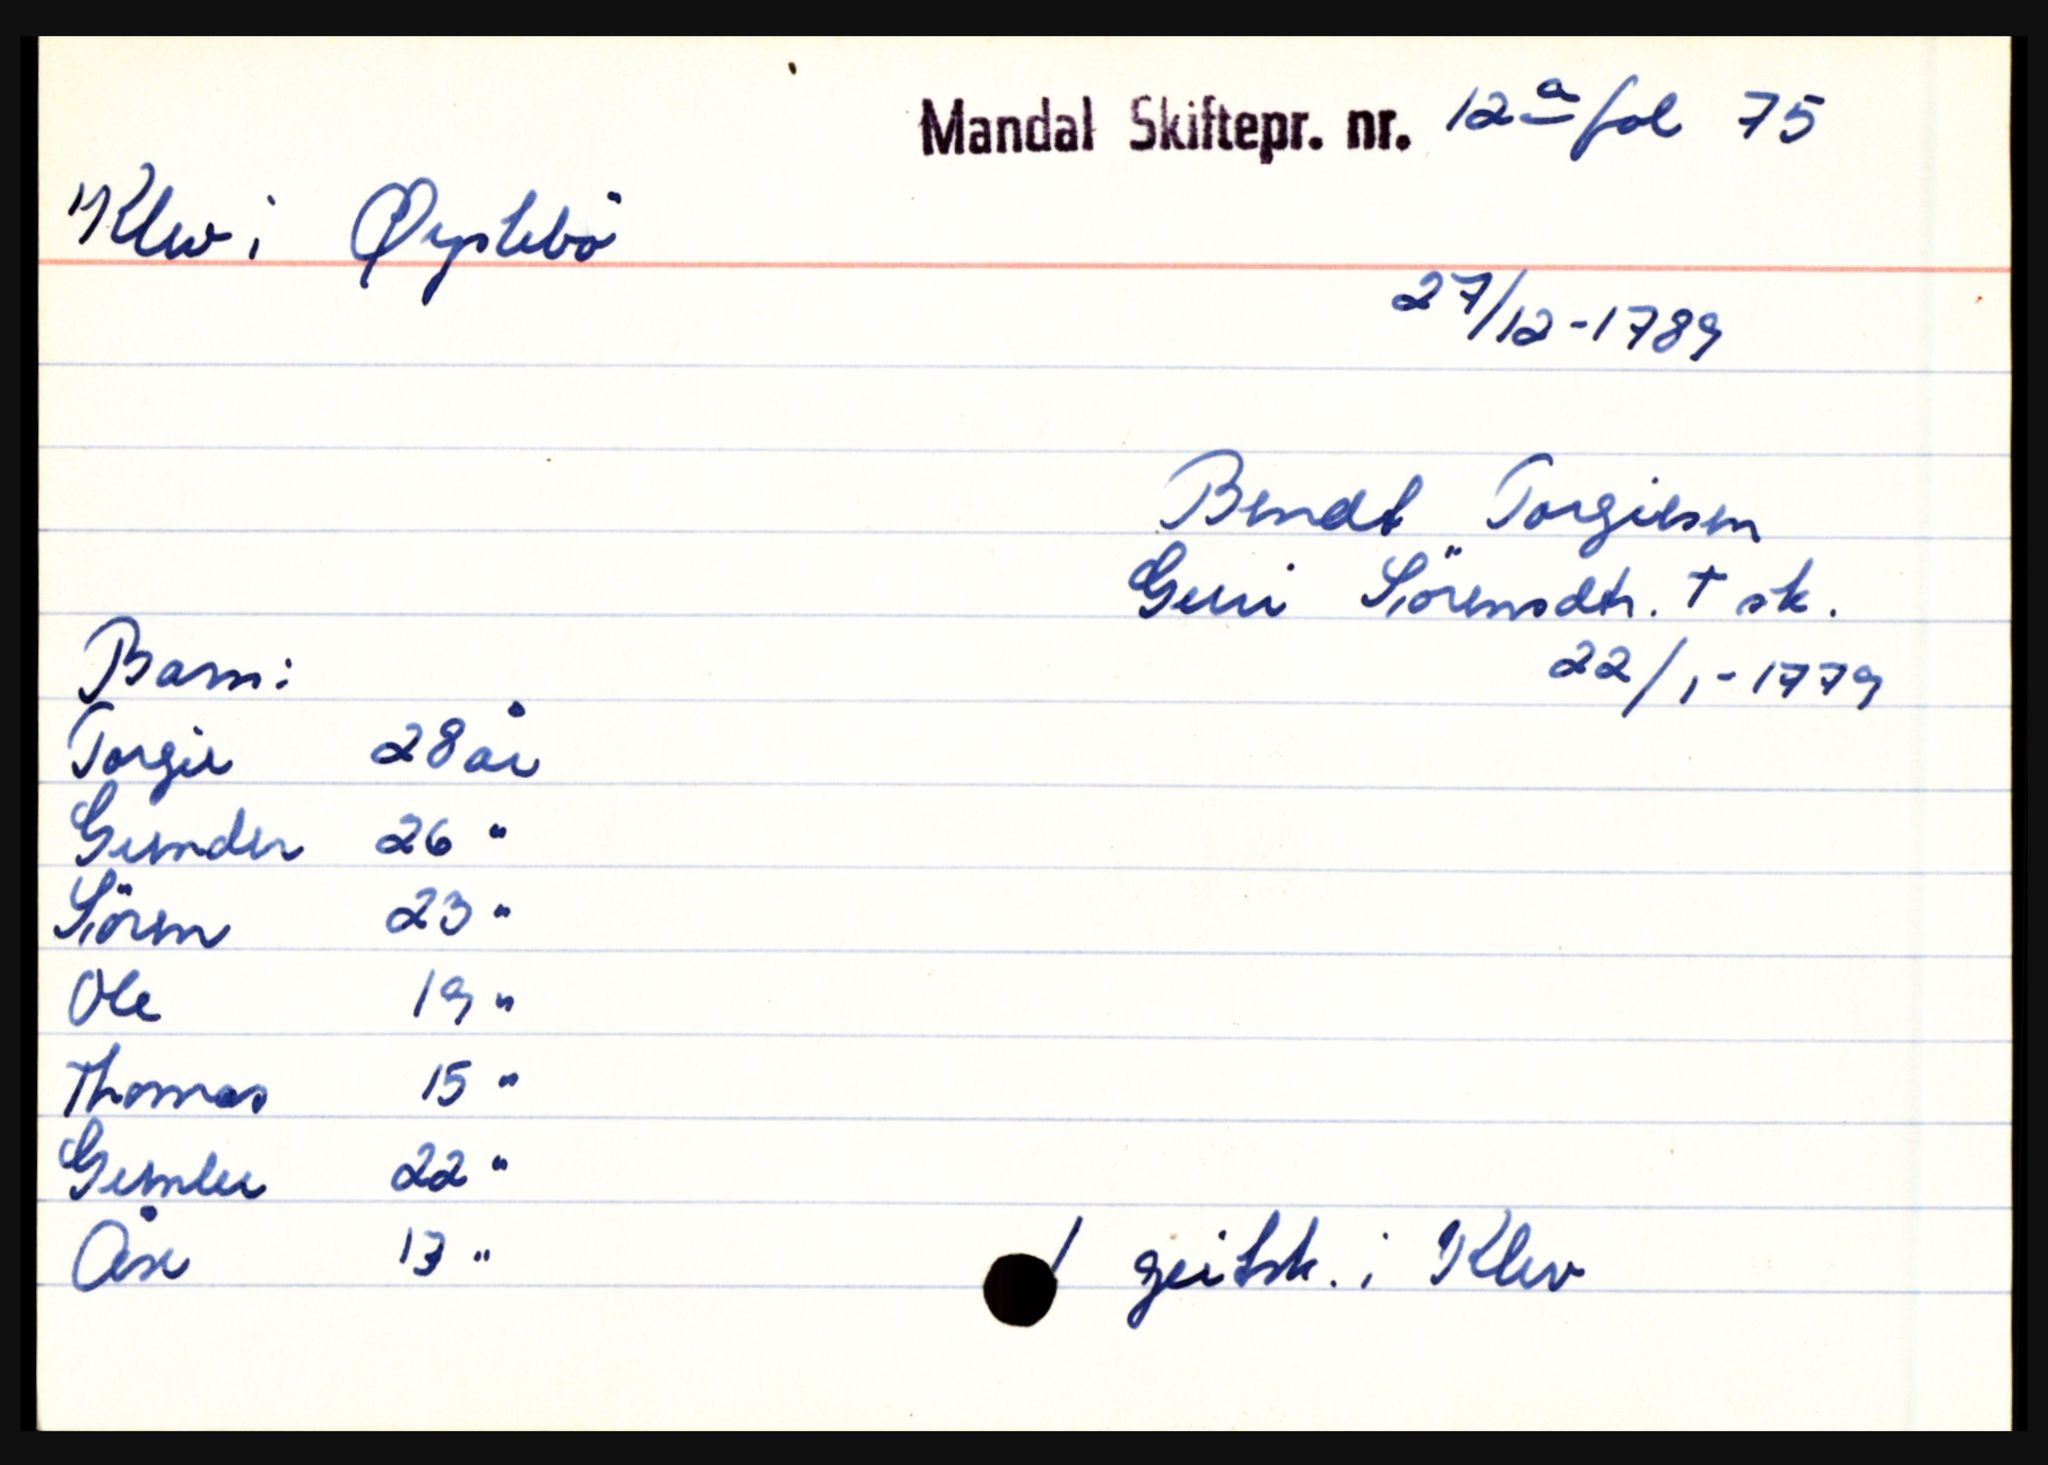 Mandal Skiftepr. nr. 12a fol 75
Klev i Øyslebö
27/12-1789
Bendt Torgilsen
Guri Sörensdtr. † sk.
22/1-1779
Barn:
Torgil 28 år
Gunder 26 "
Sören 23 "
Ole 19 "
Thomas 15 "
Gunleu 22 "
Åse 13 "
1 geitsk. i Klev